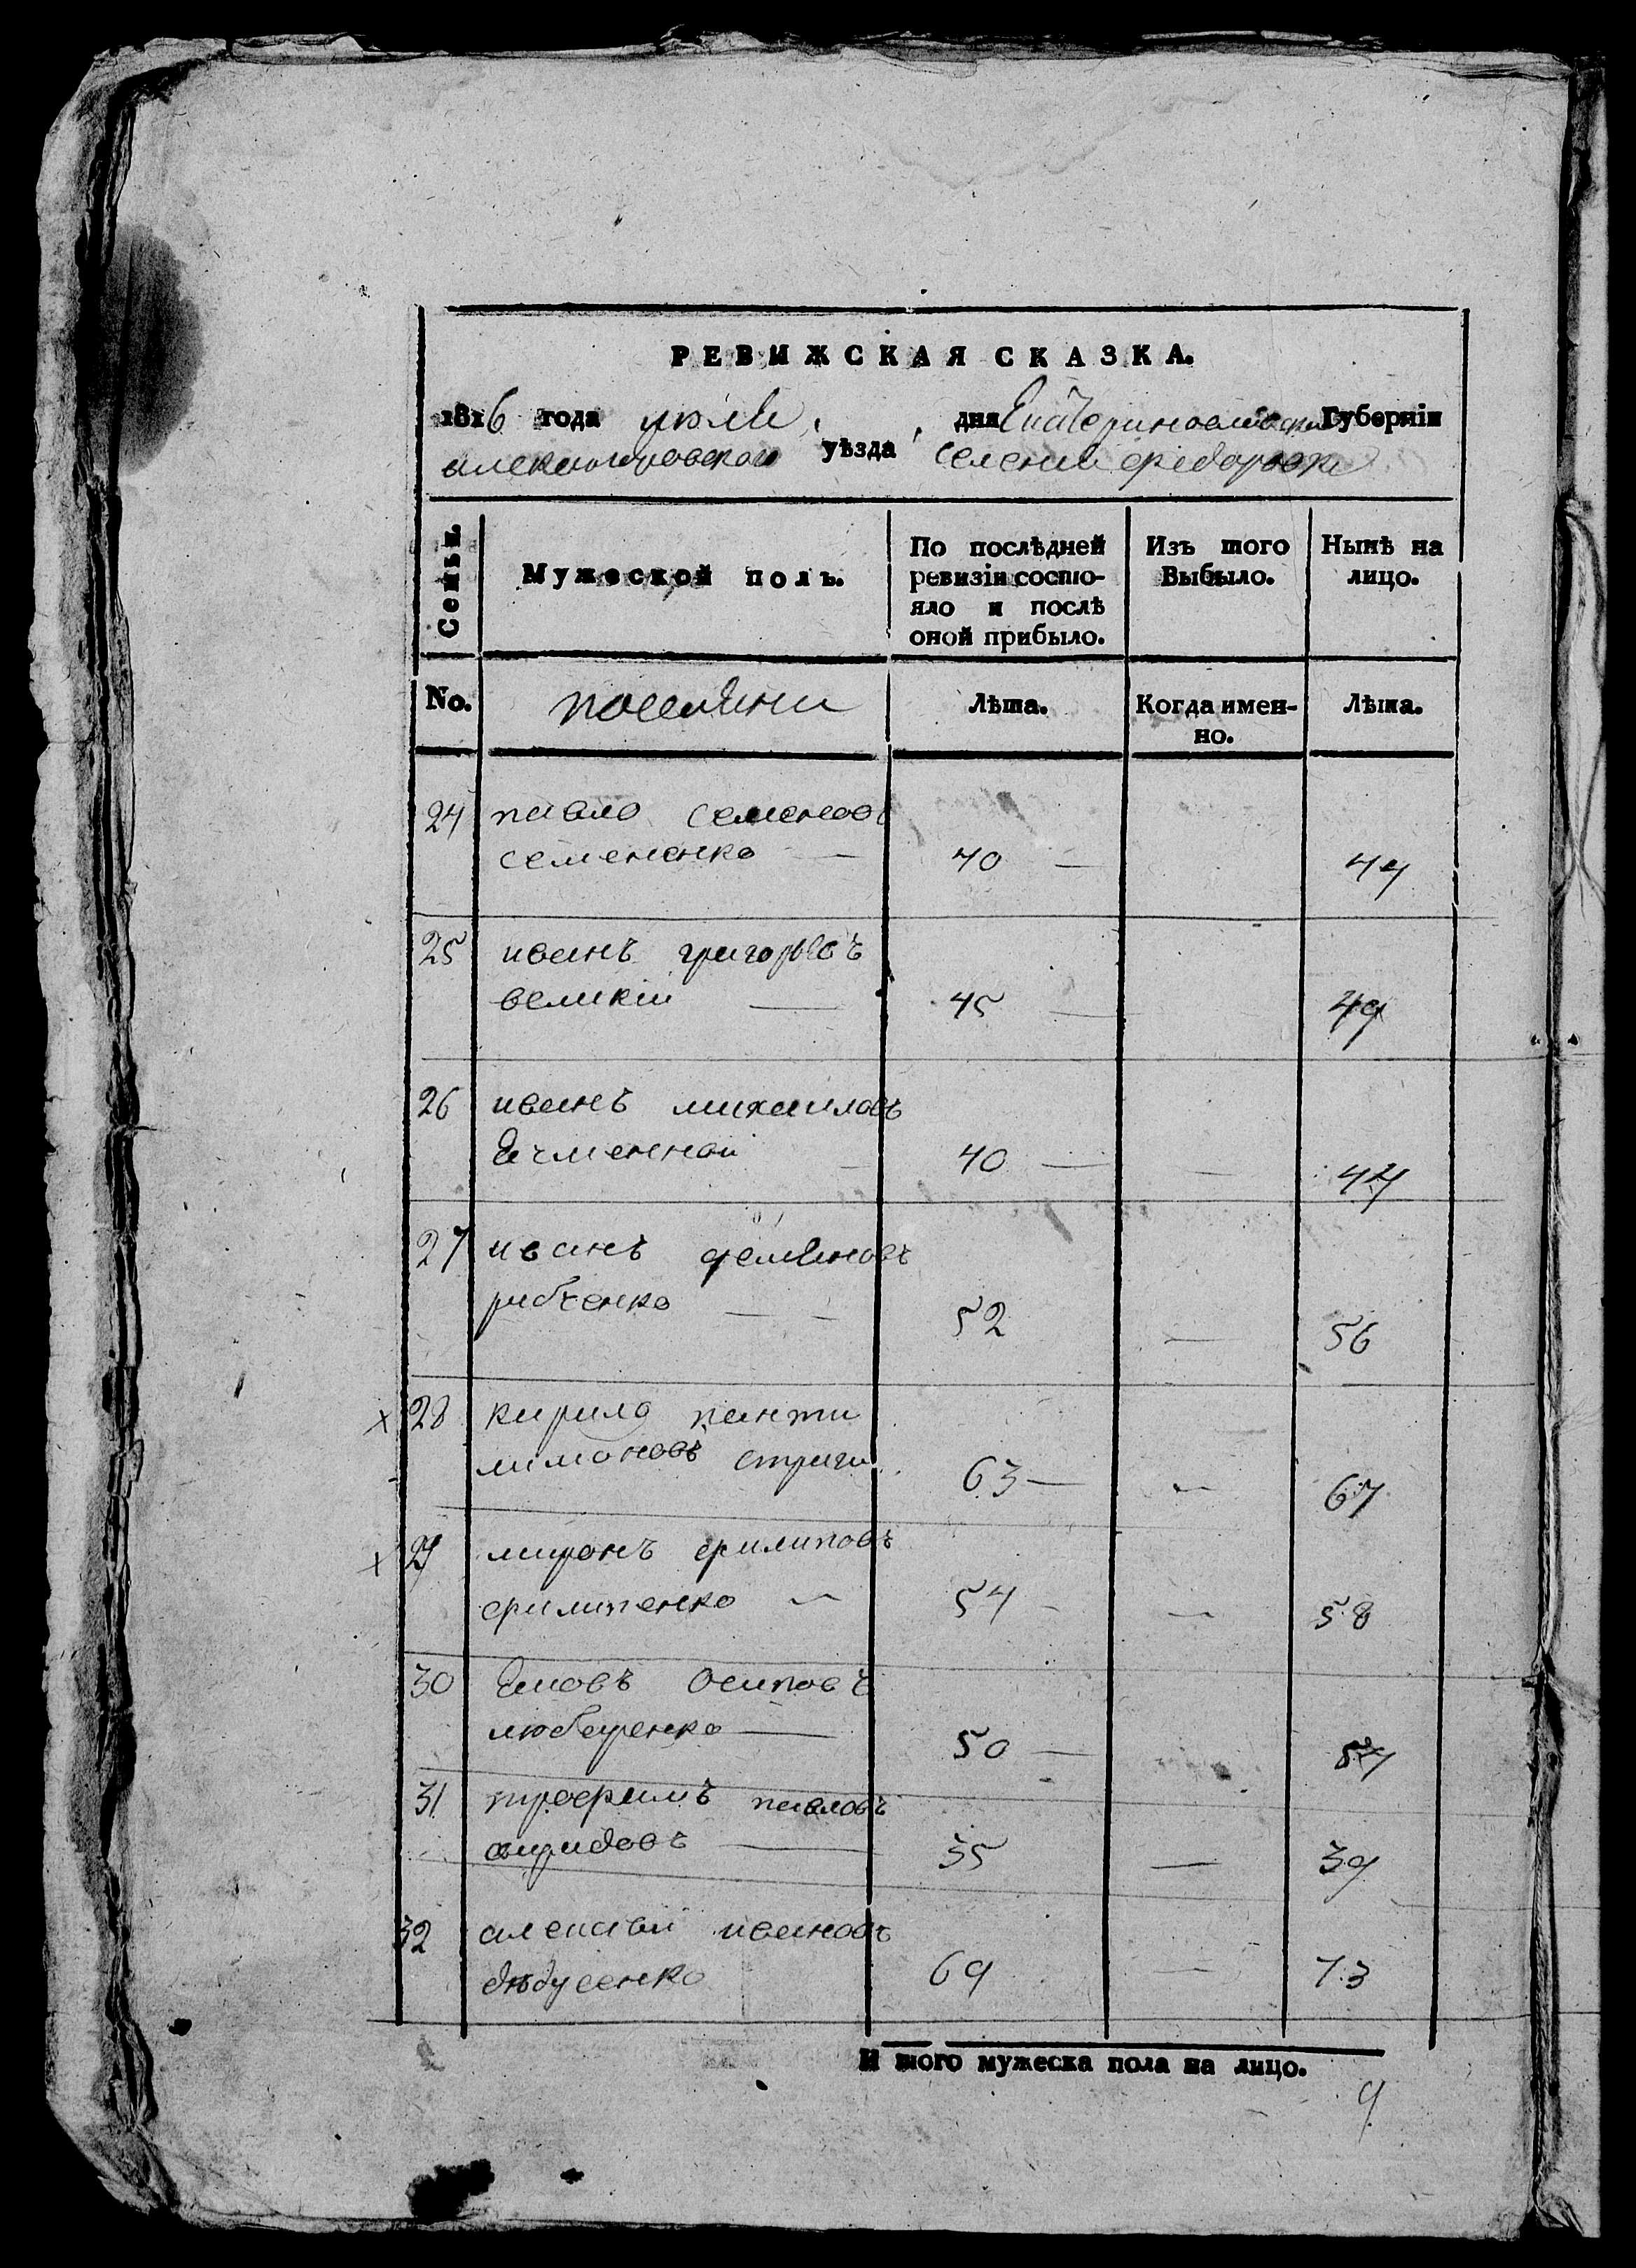 РЕВИЖСКАЯ СКАЗКА.
1816 года июля дня Екатеринославской Губерніи
александровского уѣзда селения федоровки
Семьи. Мужеской полъ. По послѣдней ревизіи состо-яло и послѣ оной прибыло. Изъ того Выбыло. Нынѣ на лицо.
No. поселяни Лѣта. Когда имен-но. Лѣта.
24 павло семеновъ
семененко — 40 — 44
25 иванъ григорьевъ
великій — 45 — 49
26 иванъ михаиловъ
Ячменной — 40 — — 44
27 иванъ демяновъ
рябченко — — 52 — 56
х 28 кирило панти
лимоновъ стрига 63 — — 67
х 29 миронъ филиповъ
филипенко — 54 — — 58
30 Яковъ Осиповъ
любаренко — 50 — 54
31 трофимъ павловъ
— 35 — 39
32 алексѣй ивановъ
69 — 73
И того мужеска пола на лицо.
9